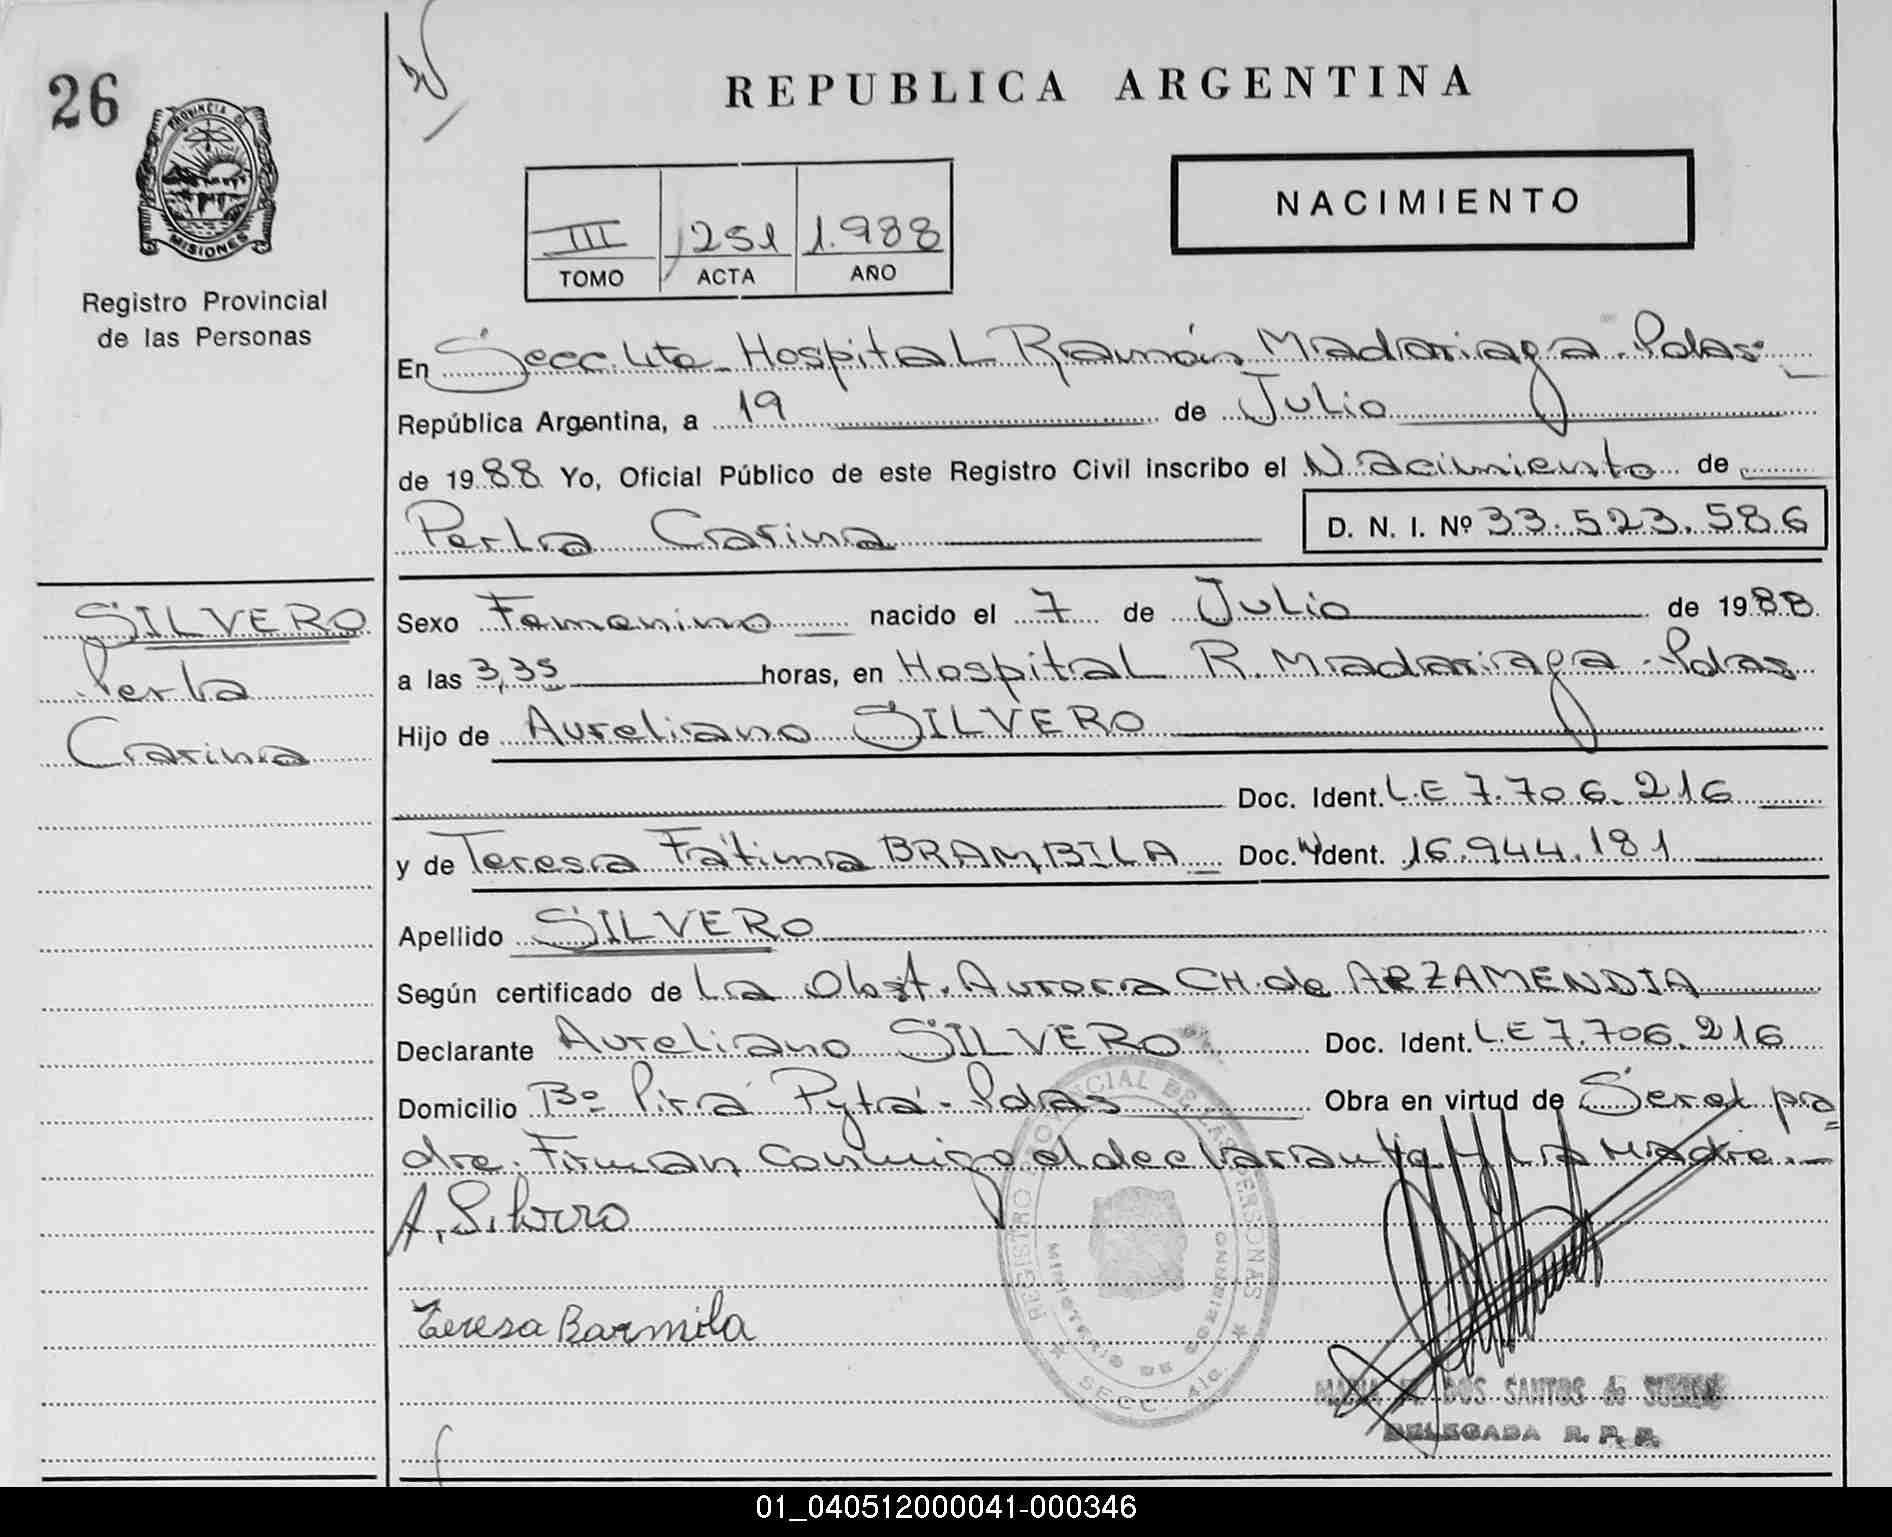 26
PROVINCIA DE
MISIONES
Registro Provincial
de las Personas
REPUBLICA ARGENTINA
NACIMIENTO
III 251 1.988
TOMO ACTA AÑO
En Secc. 4ta Hospital Ramón Madariaga - Pdas.
República Argentina, a 19 de Julio
de 1988 Yo, Oficial Público de este Registro Civil inscribo el Nacimiento de
Perla Carina D. N. I. Nº 33.523.586
SILVERO
Perla
Carina
Sexo Femenino nacido el 7 de Julio de 1988
a las 3,35 horas, en Hospital R. Madariaga - Pdas
Hijo de Aureliano SILVERO
Doc. Ident. L.E 7.706.216
y de Teresa Fátima BRAMBILA Doc. Ident. 16.944.181
Apellido SILVERO
Según certificado de La Obst. Aurora CH. de ARZAMENDIA
Declarante Aureliano SILVERO Doc. Ident. L.E 7.706.216
Domicilio Bº Pirá Pytá - Pdas Obra en virtud de Ser el pa
dre. Firman conmigo el declarante y La Madre.-
A. Silvero
Teresa Barmila
REGISTRO PROVINCIAL DE LAS PERSONAS
MINISTERIO DE GOBIERNO
SECC. 4ta.
DOS SANTOS de
DELEGADA R. P. P.
01_040512000041-000346